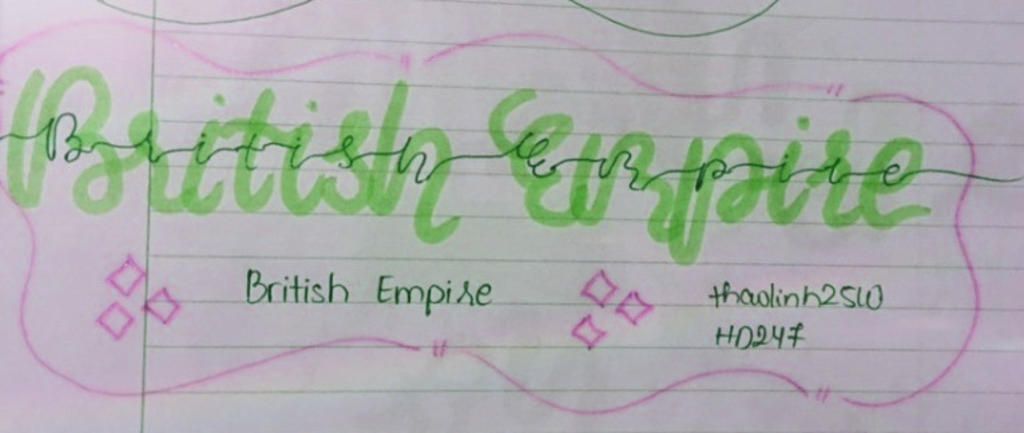 British Empire
British Empire
British Empire
thaolinh2510
HD247